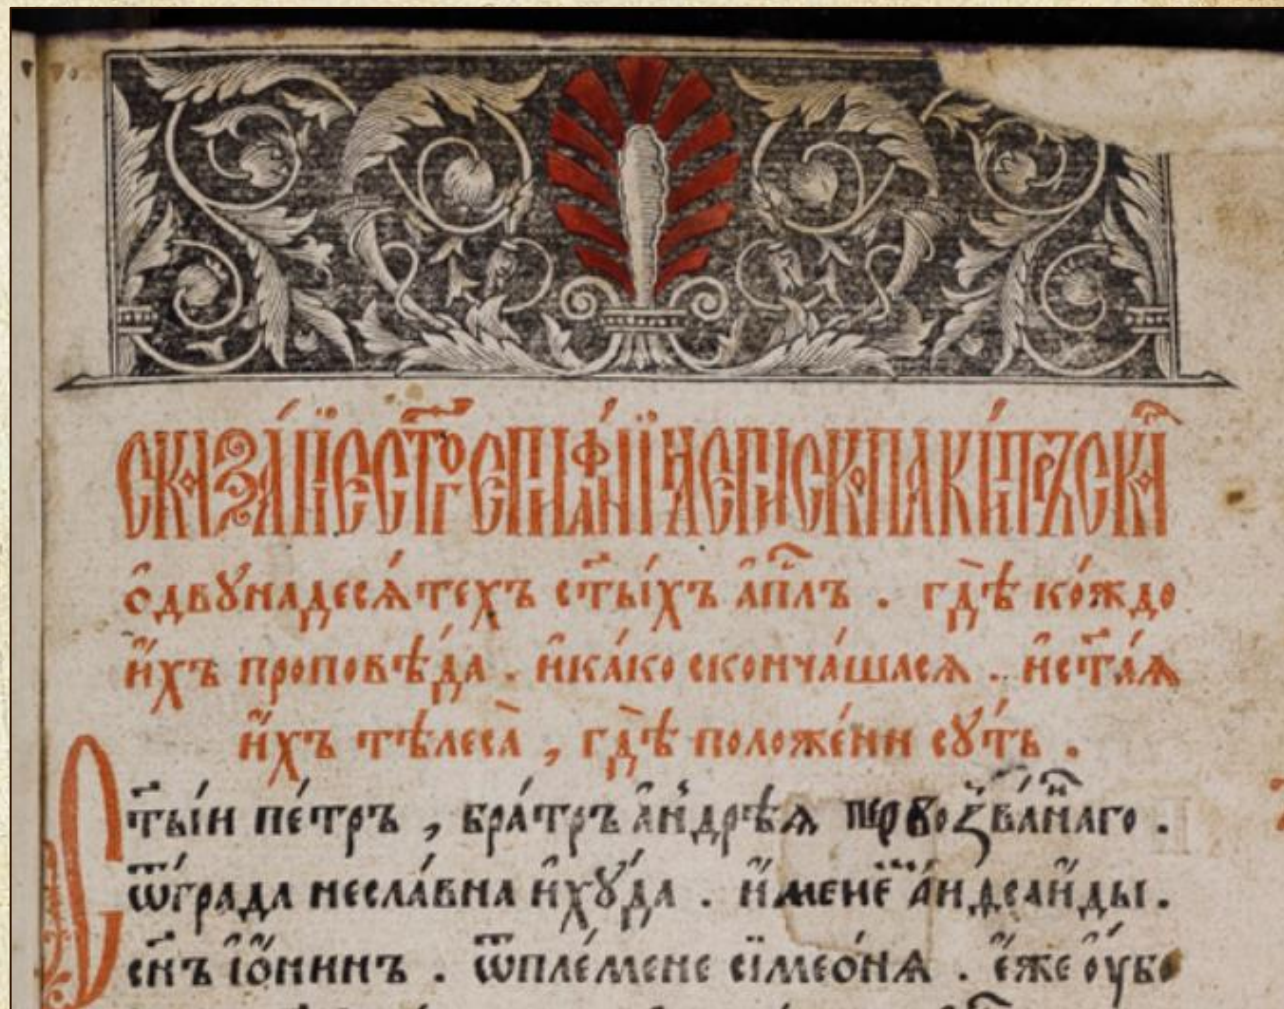 СКАЗА́НЇЕ СТ҃ГО ЕПИФА́НЇА ЕПИСКОПА КИ́ПРЪСКА
ѻ҆двꙋнадесѧ́техъ ст҃ы́хъ а҆пⷭ҇лъ . гдѣ̀ ко́ждо
и҆́хъ проповѣ́да . и҆ка́ко сконча́шасѧ . и҆ст҃а́ѧ
и҆́хъ тѣлеса̀ , гдѣ̀ положе́ни сꙋ́ть .
Ст҃ы́и пе́тръ , бра́тръ а҆ндрѣ́ѧ первозва́ннаго .
ѿгра́да несла́вна и҆хꙋ́да .
сн҃ъ і҆ѡ́нинъ . ѿпле́мене сїмео́нѧ . є҆́же оу҆́бо